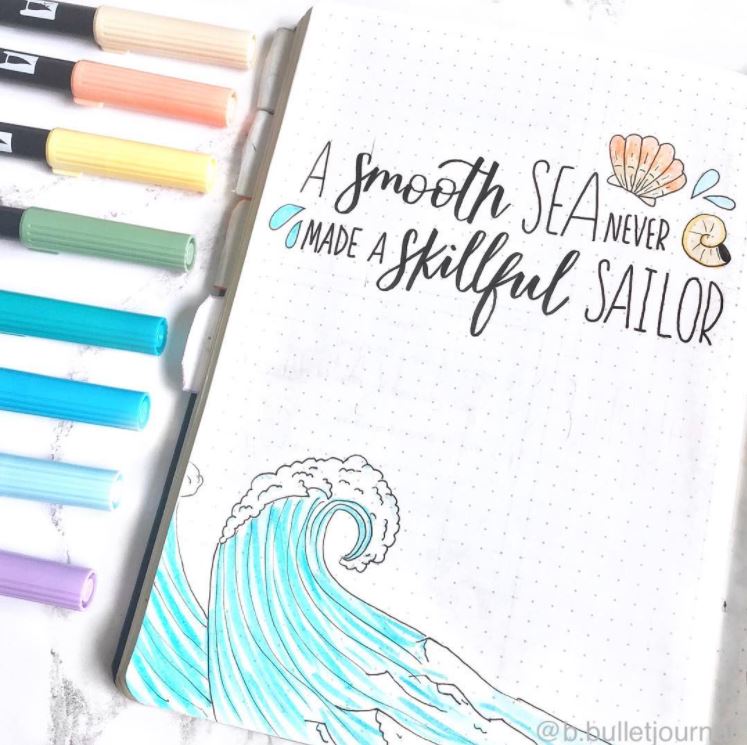 A smooth SEA NEVER
MADE A skillful SAILOR
@b.bulletjournal